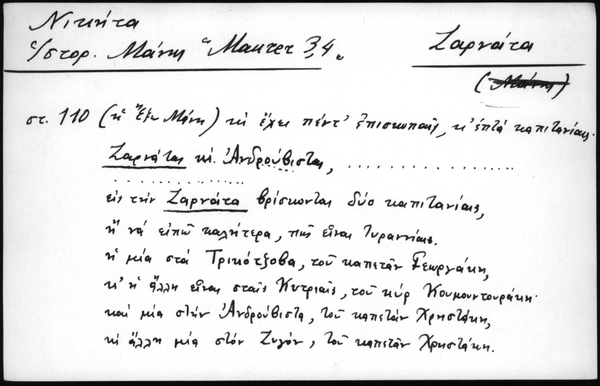 Νικήτα
Ἱστορ. Μάνης
34.
Ζαρνάτα
(Μάνης)
στ. 110 (ἡ Ἔξω Μάνη) κὶ ἔχει πέντ' ἐπισκοπαῖς, κ' ἑπτὰ καπιτανίαις.
Ζαρνάτας κὶ Ἀνδρούβιστας, ..................
..................
εἰς τὴν Ζαρνάτα βρίσκονται δύο καπιτανίαις,
ἢ νὰ εἰπῶ καλήτερα, πῶς εἶναι τυραννίαις.
ἡ μία στὰ Τρικότζοβα, τοῦ καπετὰν Γεωργάκη,
κ' ἡ ἄλλη εἶναι σταῖς Κυτριαῖς, τοῦ κὺρ Κουμουντουράκη·
καὶ μία στὴν Ἀνδρούβιστα, τοῦ καπετὰν Χρηστάκη,
κὶ ἄλλη μία στὸν Ζυγὸν, τοῦ καπετὰν Χρηστάκη.